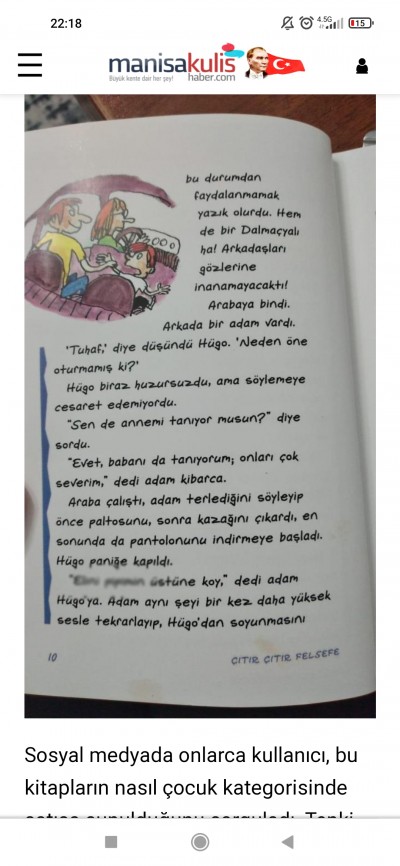 22:18
4.5G
15
manisakulis
Büyük kente dair her şey!
haber.com
bu durumdan
faydalanmamak
yazık olurdu. Hem
de bir Dalmaçyalı
ha! Arkadaşları
gözlerine
inanamayacaktı!
Arabaya bindi.
Arkada bir adam vardı.
'Tuhaf,' diye düşündü Hügo. 'Neden öne
oturmamış ki?'
Hügo biraz huzursuzdu, ama söylemeye
cesaret edemiyordu.
"Sen de annemi tanıyor musun?" diye
sordu.
"Evet, babanı da tanıyorum; onları çok
severim," dedi adam kibarca.
Araba çalıştı, adam terlediğini söyleyip
önce paltosunu, sonra kazağını çıkardı, en
sonunda da pantolonunu indirmeye başladı.
Hügo paniğe kapıldı.
üstüne koy," dedi adam
Hügo'ya. Adam aynı şeyi bir kez daha yüksek
sesle tekrarlayıp, Hügo'dan soyunmasını
10
ÇITIR ÇITIR FELSEFE
Sosyal medyada onlarca kullanıcı, bu
kitapların nasıl çocuk kategorisinde